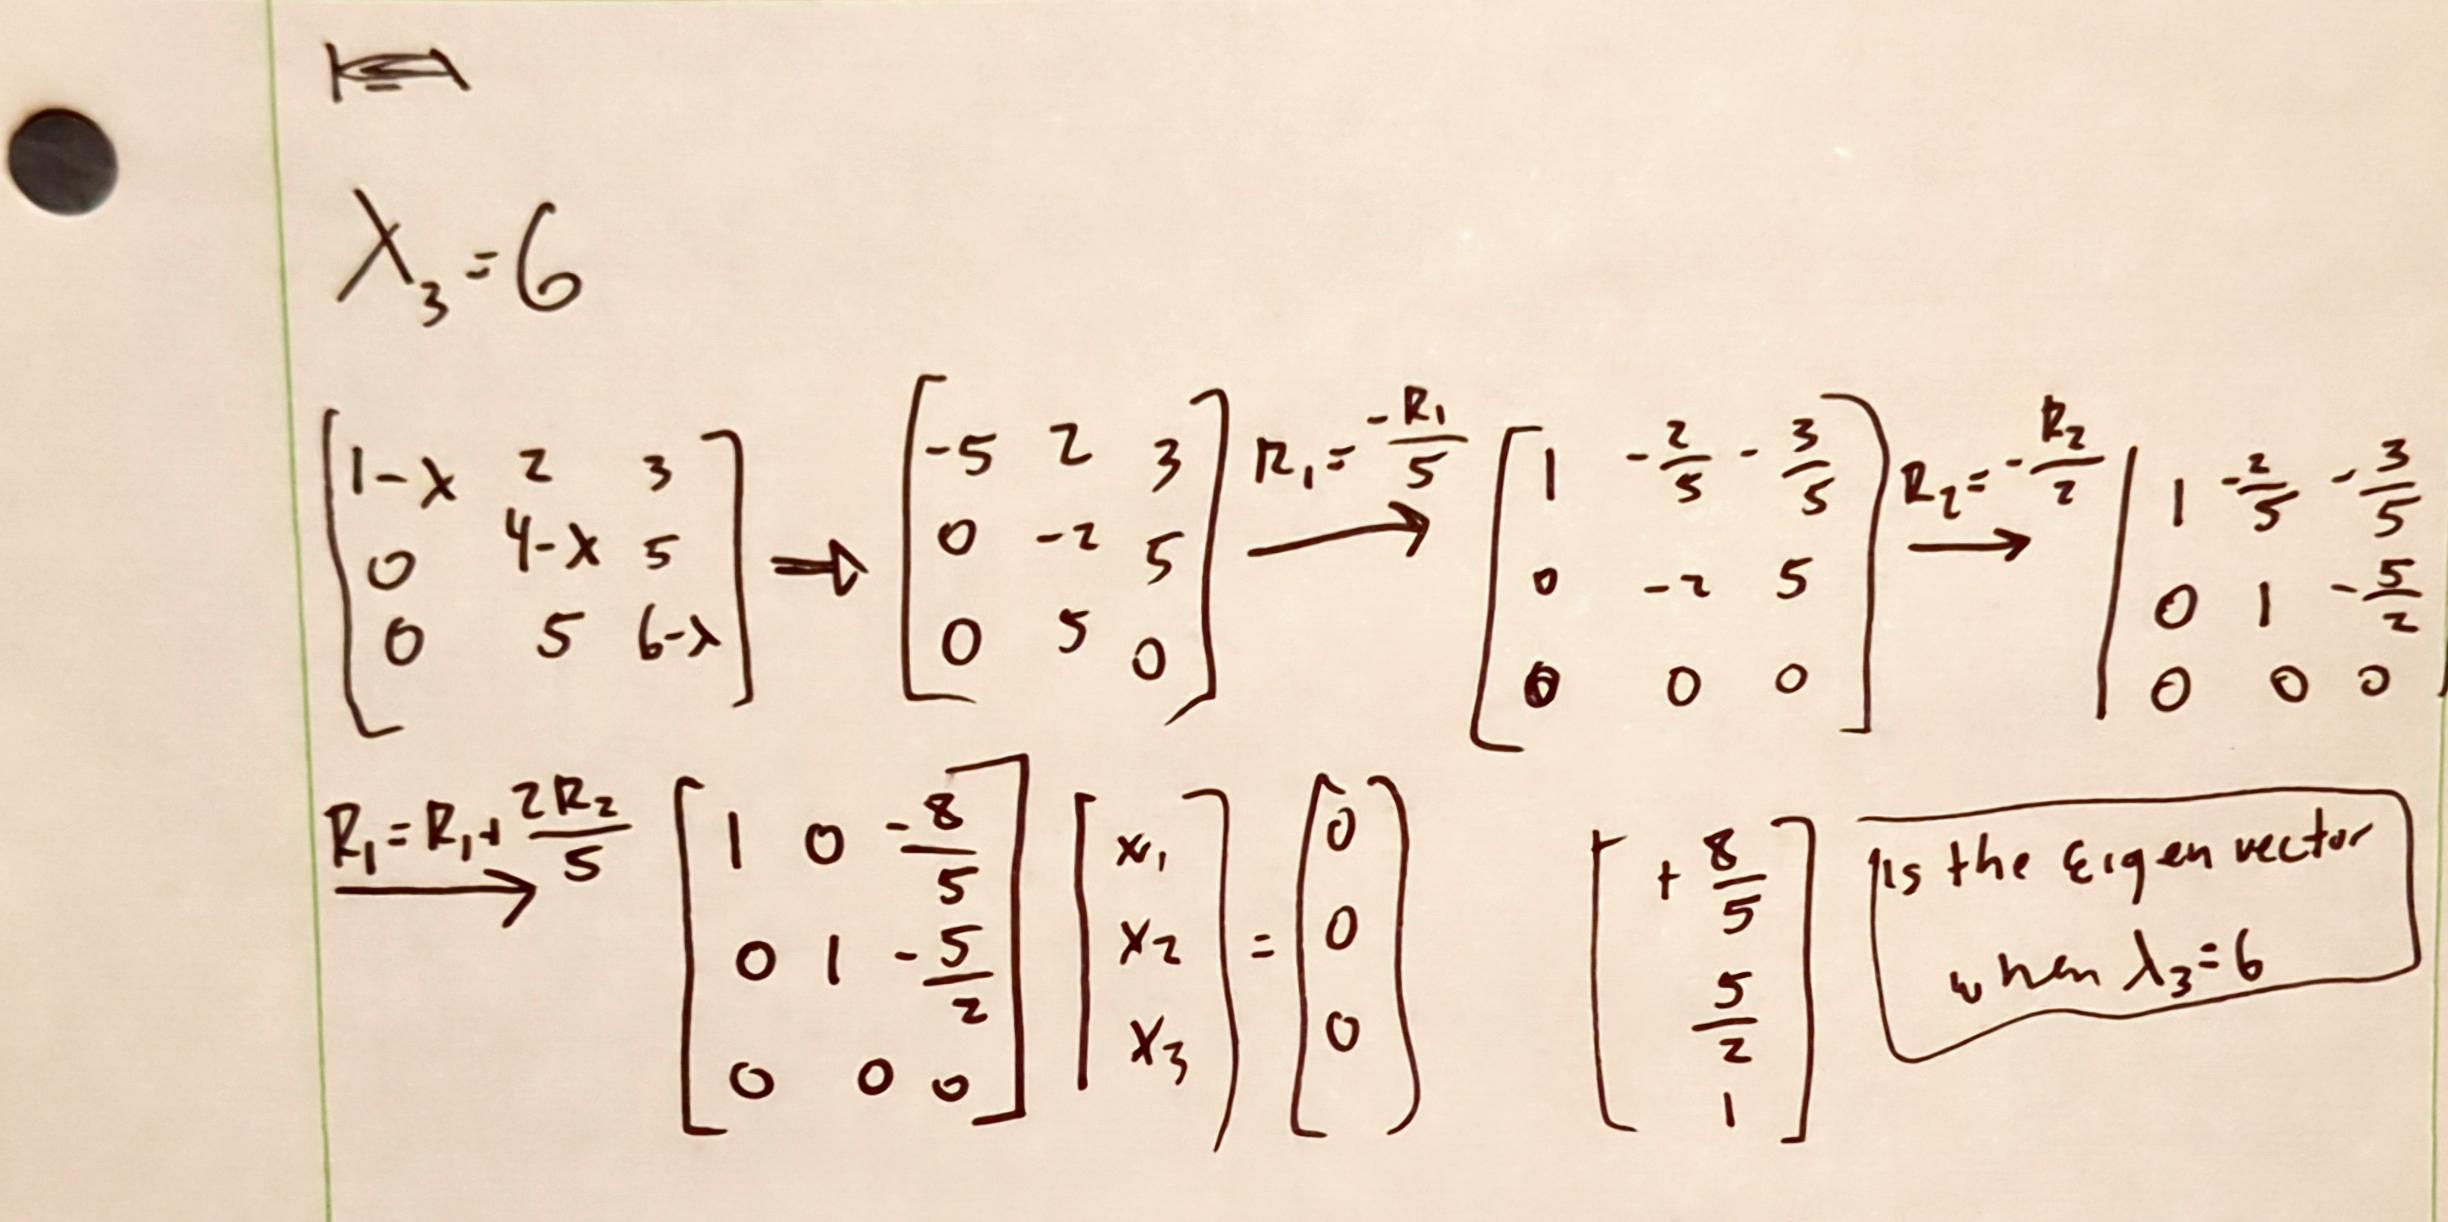 λ₃ = 6
[1-λ 2 3; 0 4-λ 5; 0 5 6-λ] ⇒ [-5 2 3; 0 -2 5; 0 5 0] R₁ = -R₁/5 → [1 -2/5 -3/5; 0 -2 5; 0 0 0] R₂ = -R₂/2 → [1 -2/5 -3/5; 0 1 -5/2; 0 0 0]
R₁ = R₁ + 2R₂/5 → [1 0 -8/5; 0 1 -5/2; 0 0 0] [x₁; x₂; x₃] = [0; 0; 0] [+8/5; 5/2; 1] is the Eigen vector
when λ₃ = 6